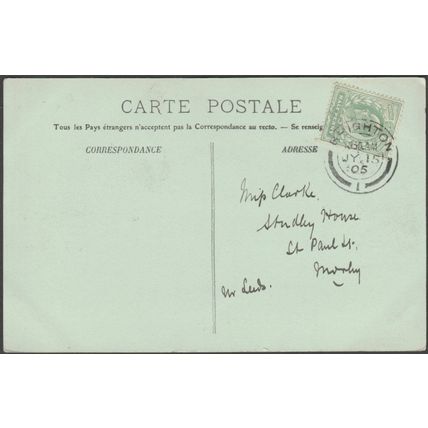 CARTE POSTALE
Tous les Pays étrangers n'acceptent pas la Correspondance au recto. — Se renseig
CORRESPONDANCE
ADRESSE
IGHTON
JY 15
05
1
Miss Clarke.
Studley House
St Paul St.
Morley
Nr Leeds.